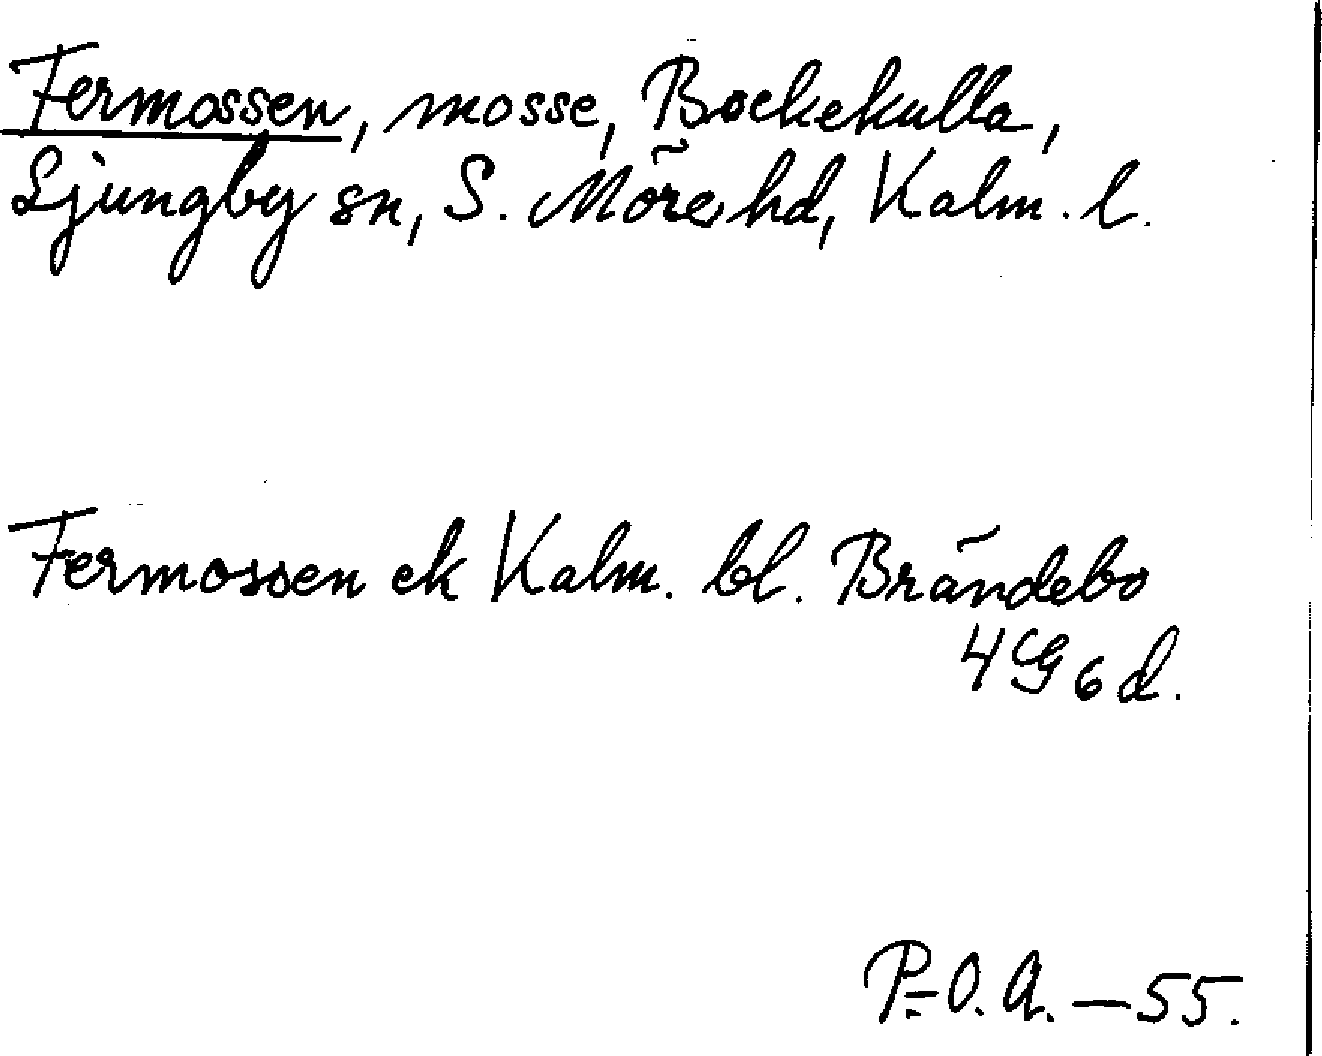 Fermossen, mosse, Bockekulla,
Ljungby sn, S. Möre hd, Kalm. l.
Fermossen ek Kalm. bl. Brändebo
4G6d.
P.-O. A. – 55.